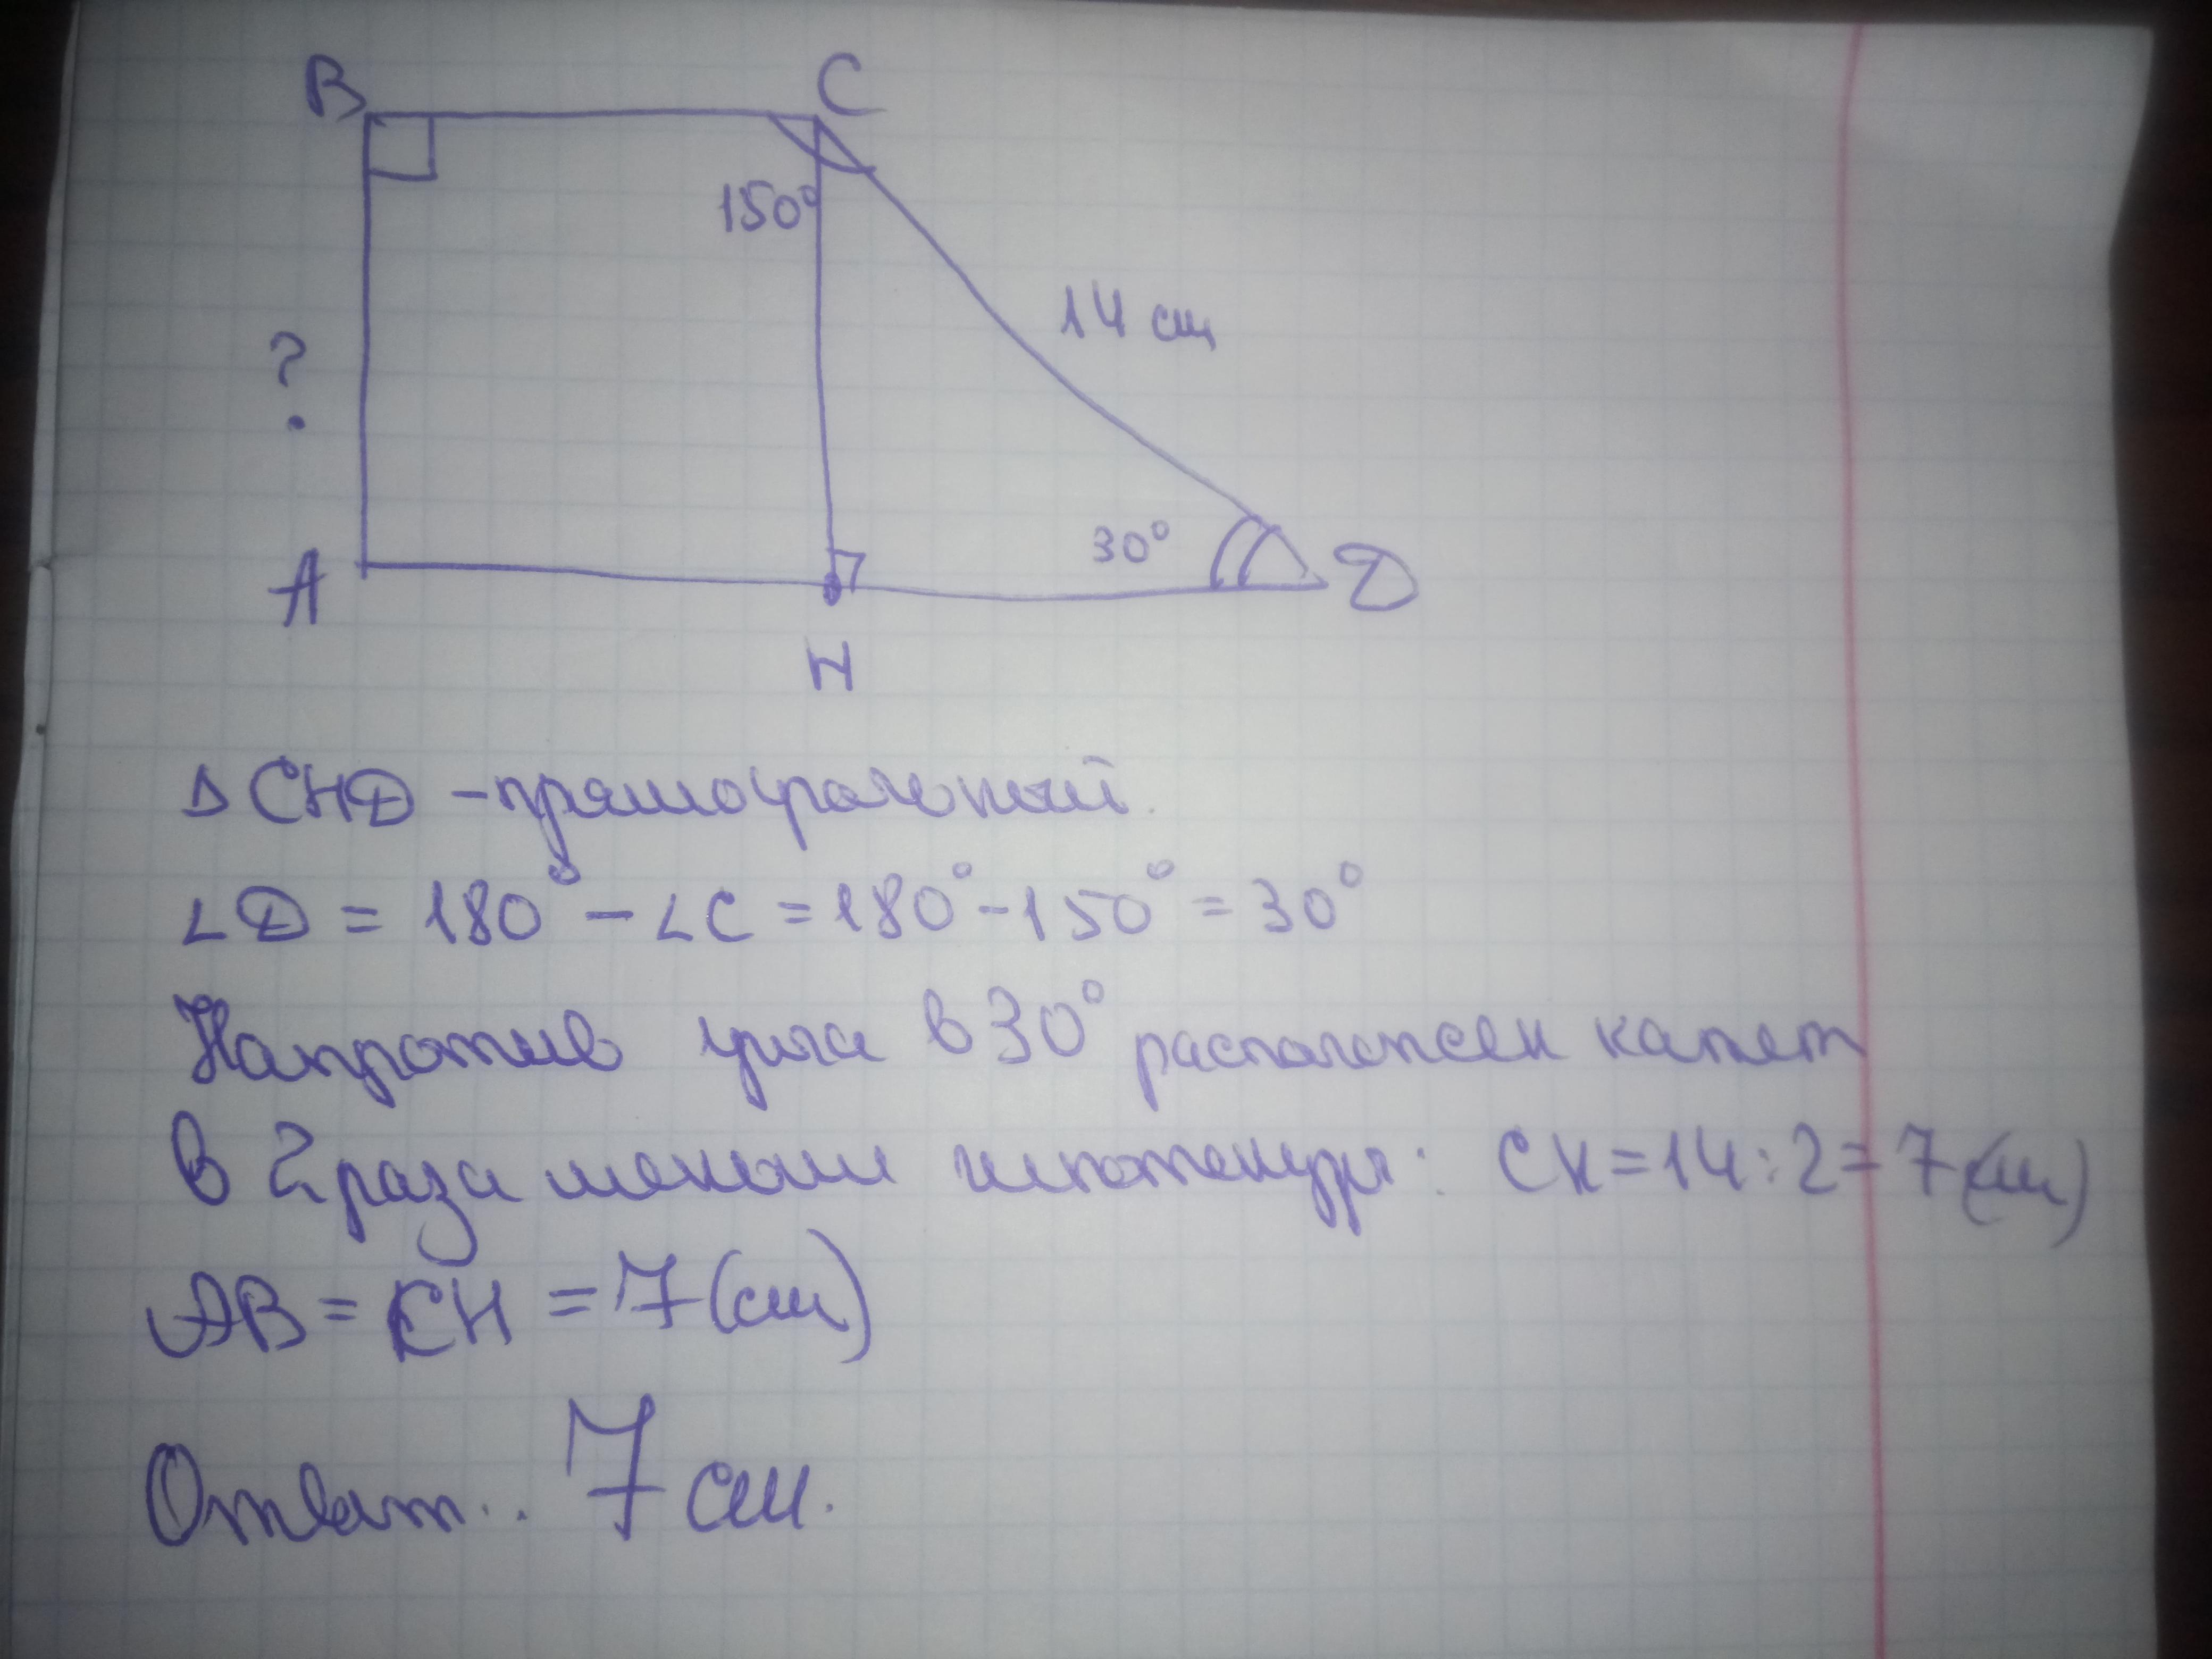 B C
150°
14 см
?
30°
A D
H
Δ CHD - прямоугольный.
∠D = 180° - ∠C = 180° - 150° = 30°
Напротив угла в 30° расположен катет
в 2 раза меньше гипотенузы: CH = 14 : 2 = 7 (см)
AB = CH = 7 (см)
Ответ: 7 см.